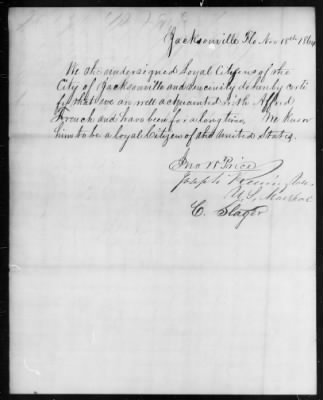 Jacksonville Fla Nov 18th 186
We the undersigned Loyal Citizens of the
City of Jacksonville and vincinity do hereby certi
fy that we are well acquainted with Alfred
French and have been for a long time. We know
him to be a loyal Citizen of the United States.
Jno W Price
Joseph
U.S. Marshal
C. Slager